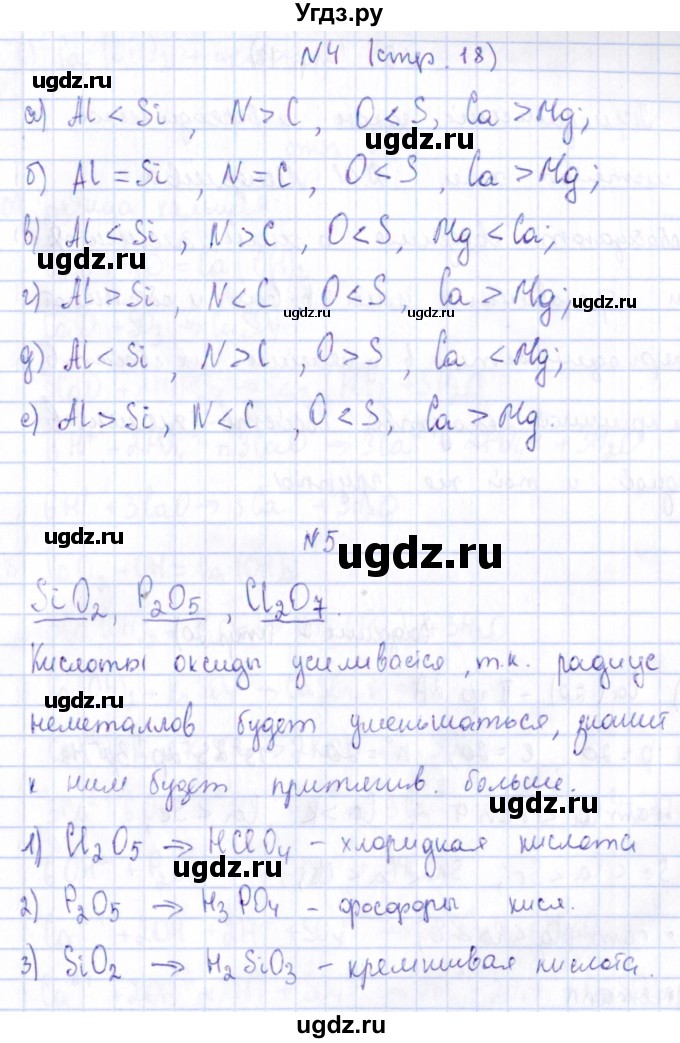 Угдз.ру
N4 (стр. 18)
ugdz.ru
а) Al < Si, N > C, O < S, Ca > Mg;
ugdz.ru
б) Al = Si, N = C, O < S, Ca > Mg;
в) Al < Si, N > C, O < S, Mg < Ca;
ugdz.ru
г) Al > Si, N < C O < S, Ca > Mg;
ugdz.ru ugdz.ru ugdz.ru
д) Al < Si, N > C, O > S, Ca < Mg;
е) Al > Si, N < C, O < S, Ca > Mg.
ugdz.ru
N5
ugdz.ru
SiO2, P2O5, Cl2O7.
Кислоты оксиды усиливаеся, т.к. радиус
ugdz.ru
неметаллов будет уменьшаться, значит
к ним будет притягив. больше.
ugdz.ru
1) Cl2O5 → HClO4 – хлоридная кислота
ugdz.ru
2) P2O5 → H3PO4 – фосфоры кисл.
ugdz.ru
3) SiO2 → H2SiO3 – кремнивая кислота.
ugdz.ru